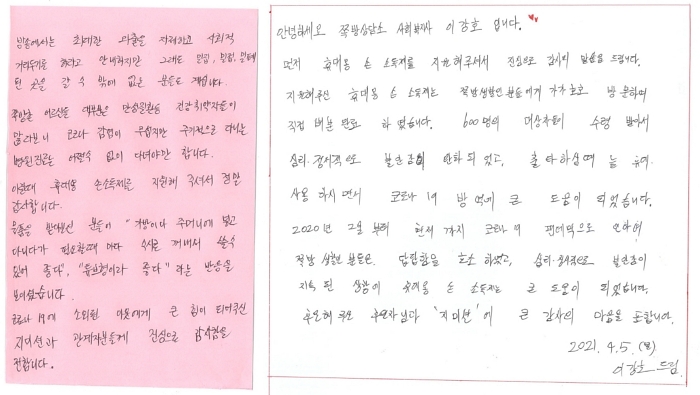 방송에서는 최대한 외출을 자제하고 사회적
거리두기를 하라고 안내하지만 그래도 밀집, 밀접, 밀폐
된 곳을 갈 수 밖에 없는 분들도 계십니다.
쪽방촌 어르신들 대부분은 만성질환등 건강취약자들이
많다보니 코로나 감염이 무섭지만 주기적으로 다니는
병원진료는 어쩔수 없이 다녀야만 합니다.
이런때 휴대용 손소독제를 지원해 주셔서 정말
감사합니다.
물품을 받아보신 분들이 "가방이나 주머니에 넣고
다니다가 필요할때 마다 수시로 꺼내서 쓸수
있어 좋다", "튜브형이라 좋다" 라는 반응을
보이셨습니다.
코로나 19에 소외된 이웃에게 큰 힘이 되어주신
지미션과 관계자분들께 진심으로 감사함을
전합니다.
안녕하세요 쪽방상담소 사회복지사 이강호 입니다.
먼저 휴대용 손 소독제를 지원해주셔서 진심으로 감사의 말씀을 드립니다.
지원해주신 휴대용 손 소독제는 쪽방생활인분들에게 가가호호 방문하여
직접 배분 완료 하였습니다. 600명의 대상자들이 수령 받아서
심리·정서적으로 불안감이 완화되었고, 출타하실때 늘 휴대
사용하시면서 코로나 19 방역에 큰 도움이 되었습니다.
2020년 2월부터 현재까지 코로나 19 팬데믹으로 인하여
쪽방 생활인분들은 답답함을 호소하셨고, 심리·정서적으로 불안감이
지속된 상황이 휴대용 손 소독제는 큰 도움이 되었습니다.
후원해주신 후원자님과 '지미션'에 큰 감사의 마음을 표합니다.
2021. 4. 5. (월)
이강호 드림